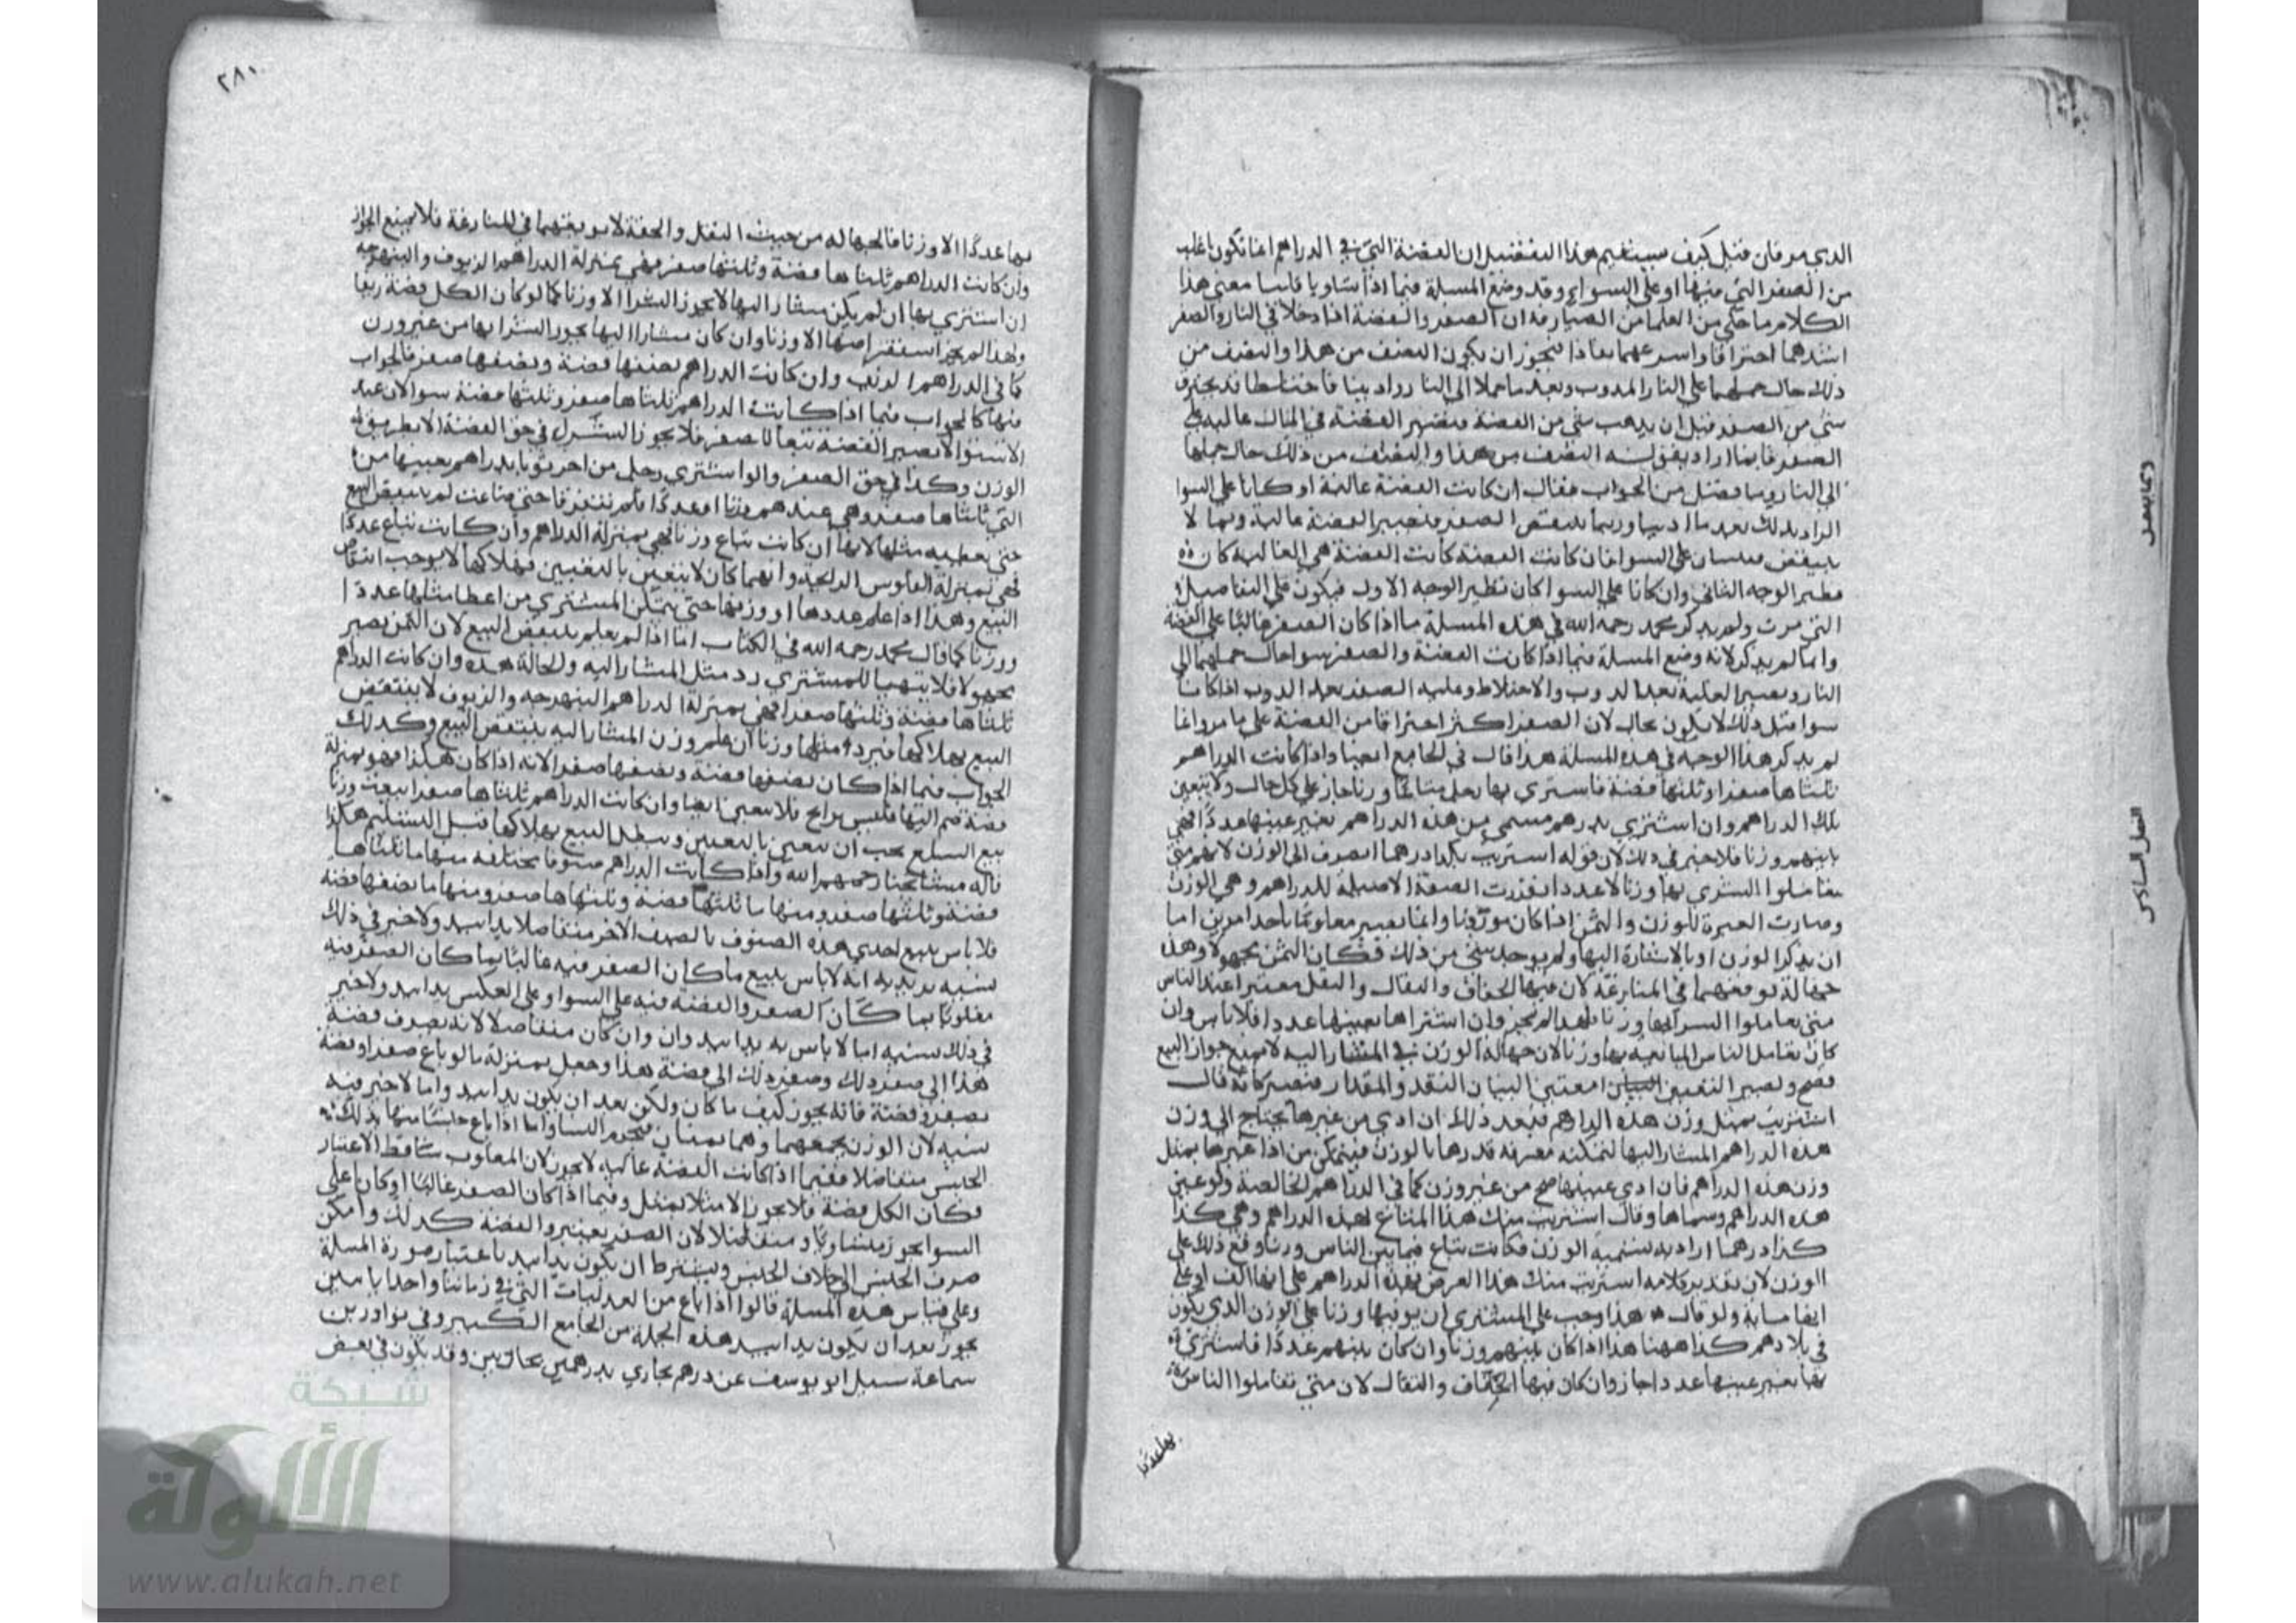 الذي مر فان قيل كيف يستقيم هذا التفصيل ان الفضة التي في الدراهم انما تكون اغلب
من الصفر التي فيها او على السواء وقد وضع المسلة فيما اذا تساويا قلنا معنى هذا
الكلام ما حكي من العلما من الصيارفة ان الصفر والفضة اذا دخلا في النار والصفر
اشدهما احتراقا واسرعهما فاذا يجوز ان يكون النصف من هذا والنصف من
ذلك حال حملهما على النار المذوب وبعد ما حملا الى النار وذابا فاختلطا قد يحترق
شي من الصفر قبل ان يذهب شي من الفضة فتصير الفضة في المال غالبة على
الصفر فانما اراد بقوله النصف من هذا والنصف من ذلك حال حملهما
الى النار وما فصل من الجواب فقال ان كانت الفضة غالبة او كانا على السوا
اراد بذلك بعد ما اذيبا وربما ينتقص الصفر فتصير الفضة غالبة وربما لا
ينتقص فيبقيان على السوا فان كانت الفضة كانت الفضة هي الغالبة كان
نظير الوجه الثاني وان كانا على السوا كان نظير الوجه الاول فيكون على التفاصيل
التي مرت ولم يذكر محمد رحمه الله في هذه المسلة ما اذا كان الصفر غالبا على الفضة
وانما لم يذكر لانه وضع المسلة فيما اذا كانت الفضة والصفر سوا حال حملهما الى
النار وتصير الغلبة بعد الذوب والاختلاط وغلبة الصفر بعد الذوب اذا كانا
سوا قبل ذلك لا يكون بحال لان الصفر اكثر احتراقا من الفضة على ما مر وانما
لم يذكر هذا الوجه في هذه المسلة هذا قال في الجامع ايضا واذا كانت الدراهم
ثلثاها صفرا وثلثها فضة فاشترى بها رجل متاعا وزنا جاز على كل حال ولا يتعين
تلك الدراهم وان اشترى بدرهم مسمى من هذه الدراهم بغير عينها عددا فهي
بينهم وزنا فلا خير في ذلك لان قوله اشتريت بكذا درهما انصرف الى الوزن لانهم متى
تعاملوا الشري بها وزنا لا عددا تقررت الصفة الاصلية للدراهم وهي الوزن
وصارت العبرة للوزن والثمن اذا كان موزونا وانما يصير معلوما باحد امرين اما
ان يذكر الوزن او بالاشارة اليها ولم يوجد شي من ذلك فكان الثمن مجهولا وهذا
جهالة توقعهما في المنازعة لان فيها الخفاف والثقال والثقل معتبر عند الناس
متى تعاملوا الشرا بها وزنا فلهذا لم يجز وان اشتراها بعينها عددا فلا باس وان
كان تعامل الناس المبايعة بها وزنا لان جهالة الوزن في المشار اليه لا يمنع جواز البيع
فصح ويصير التعيين معتبر البيان النقد والمقدار فتصير كانه قال
اشتريت بمثل وزن هذه الدراهم فبعد ذلك ان ادي من غيرها يحتاج الى وزن
هذه الدراهم المشار اليها لتمكنه معرفة قدرها بالوزن فيتمكن من اذا غيرها بمثل
وزن هذه الدراهم فان ادي عينها صح من غير وزن كما في الدراهم الخالصة ولو عين
هذه الدراهم وسماها وقال اشتريت منك هذا المتاع لهذه الدراهم وهي كذا
كذا درهما اراد به تسمية الوزن فكانت تباع فيما بين الناس وزنا وقع ذلك على
الوزن لان تقدير كلامه اشتريت منك هذا العرض بهذه الدراهم على انها الف او على
انها مساية ولو قال هذا وجب على المشتري ان يوفيها وزنا على الوزن الذي يكون
في بلادهم كذا ههنا هذا اذا كان بينهم وزنا وان كان بينهم عددا فاشترى
بها بغير عينها عددا جاز وان كان فيها الخفاف والثقال لان متى تعاملوا الناس
بها عددا
٢٨٠
بها عددا الا وزنا فالجهالة من حيث الثقل والخفة لا يوقعهما في المنازعة فلا يمنع الجواز
وان كانت الدراهم ثلثاها فضة وثلثها صفر فهي بمنزلة الدراهم الزيوف والنبهرجة
ان اشترى بها ان لم يكن مشارا اليها لا يجوز الشرا الا وزنا كما لو كان الكل فضة ربعا
ولهذا لم يجز استقراضها الا وزنا وان كان مشارا اليها يجوز الشرا بها من غير وزن
كما في الدراهم الزيف وان كانت الدراهم نصفها فضة ونصفها صفر فالجواب
فيها كالجواب فيما اذا كانت الدراهم ثلثاها صفر وثلثها فضة سوا لان عند
الاستوا لا تصير الفضة تبعا للصفر فلا يجوز الشرا في حق الفضة الا بطريق
الوزن وكذا في حق الصفر والو اشترى رجل من اخر ثوبا بدراهم بعينها من
التي ثلثاها صفر وهي عندهم وزنا او عددا فلم يتفرقا حتى ضاعت لم ينتقض البيع
حتى يعطيه مثلها لانها ان كانت تباع وزنا فهي بمنزلة الدراهم وان كانت تباع عددا
فهي بمنزلة الفلوس الرايجة وايهما كان لا يتعين بالتعيين فهلاكها لا يوجب انتقاض
البيع وهذا اذا علم عددها او وزنها حتى يتمكن المشتري من اعطا مثلها عددا
ووزنا كما قال محمد رحمه الله في الكتاب اما اذا لم يعلم ينتقض البيع لان الثمن يصير
مجهولا فلا يتهيا للمشتري رد مثل المشار اليه والحالة هذه وان كانت الدراهم
ثلثاها فضة وثلثها صفرا فهي بمنزلة الدراهم النبهرجة والزيوف لا ينتقض
البيع بهلاكها فيرد مثلها وزنا ان علم وزن المشار اليه ينتقض البيع وكذلك
الجواب فيما اذا كان نصفها فضة ونصفها صفرا لانه اذا كان هكذا فهو بمنزلة
فضة ضم اليها فلس رايج فلا يتعين ايضا وان كانت الدراهم ثلثاها صفرا بيعت وزنا
بيع السلع يجب ان تتعين بالتعيين ويبطل البيع بهلاكها قبل التسليم هكذا
قاله مشايخنا رحمهم الله واذا كانت الدراهم صنوفا مختلفة منها ما ثلثاها
فضة وثلثها صفر ومنها ما ثلثها فضة وثلثاها صفر ومنها ما نصفها فضة
فلا باس ببيع احدى هذه الصنوف بالصنف الاخر متفاضلا يدا بيد ولا خير في ذلك
نسيه يريد به انه لا باس ببيع ما كان الصفر فيه غالبا بما كان الصفر فيه
مغلوبا بما كان الصفر والفضة فيه على السوا وعلى العكس يدا بيد ولا خير
في ذلك نسيه اما لا باس به يدا بيد وان وان كان متفاضلا لانه يصرف فضة
هذا الى صفر ذلك وصفر ذلك الى فضة هذا وجعل بمنزلة ما لو باع صفرا وفضة
بصفر وفضة فانه يجوز كيف ما كان ولكن بعد ان يكون يدا بيد واما لا خير فيه
نسيه لان الوزن يجمعهما وهما ثمنان فيحرم النسا واما اذا باع جنسا منها بذلك
الجنس متفاضلا ففيما اذا كانت الفضة غالبة لا يجوز لان المغلوب ساقط الاعتبار
فكان الكل فضة فلا يجوز الا مثلا بمثل وفيما اذا كان الصفر غالبا او كان على
السوا يجوز متساويا ومتفاضلا لان الصفر يعتبر والفضة كذلك وامكن
صرف الجنس الى خلاف الجنس ويشترط ان يكون يدا بيد باعتبار صورة المسلة
وعلى قياس هذه المسلة قالوا اذا باع من العدليات التي في زماننا واحدا باثنين
يجوز بعد ان يكون يدا بيد هذه الجملة من الجامع الكبير وفي نوادر بن
سماعة سيل ابو يوسف عن درهم بخاري بدرهمين بخاريين وقد يكون في بعض
شبكة
الألوكة
www.alukah.net